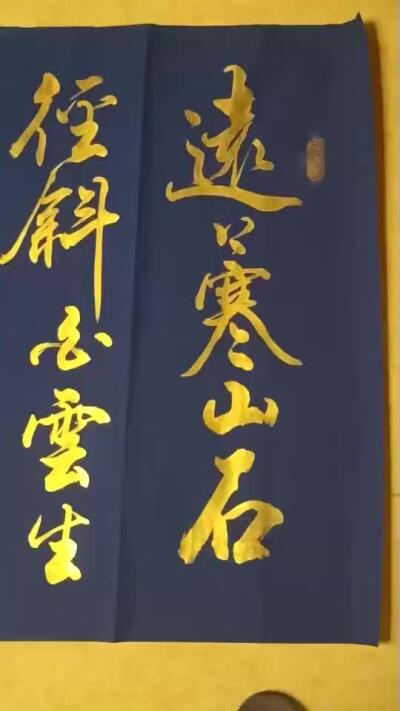 遠上寒山石
徑斜白雲生